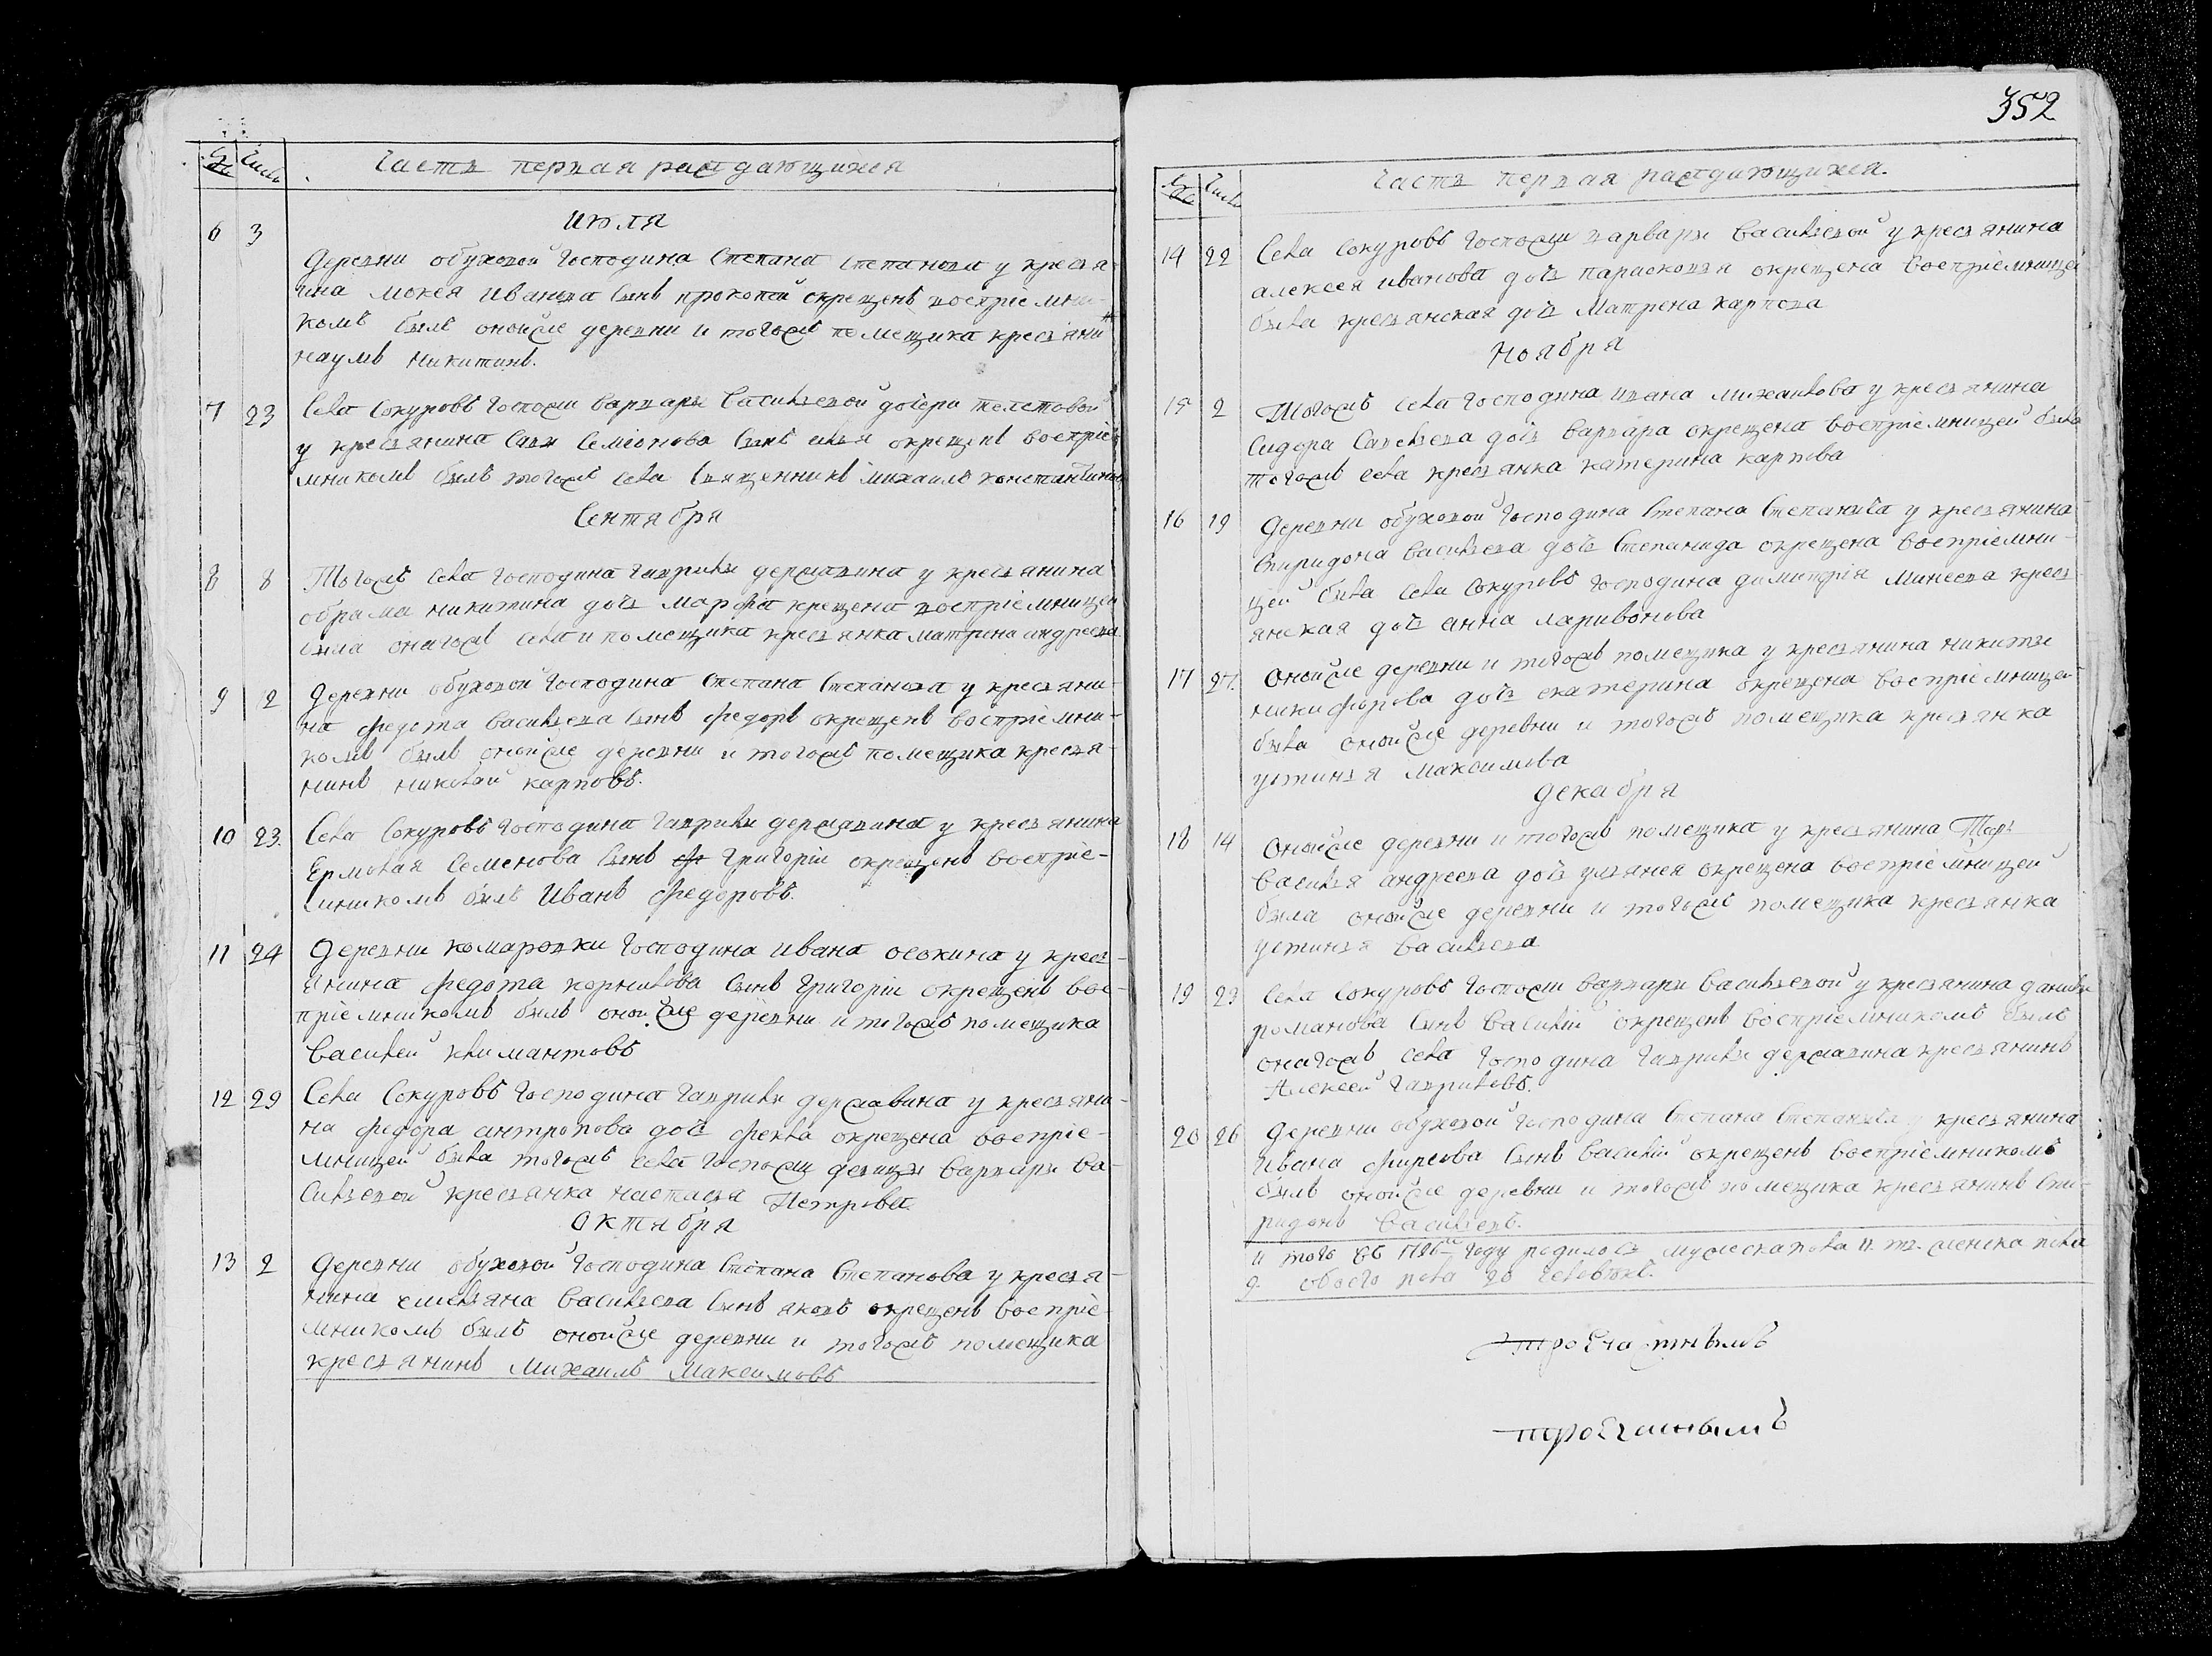 № Числа Часть первая раждающихся
Июля
6 3
Деревни обуховой Господина Степана степанова у кресья-
нина мокея Иванова сынъ прокопей окрещенъ восприемни-
комъ былъ онойже деревни и тогожъ помещика кресьяни
наумъ никитинъ.
7 23 Села Сокуровъ Госпожи варвары Васильевой дочери толстовой
у кресьянина Савы Семионова сынъ илья окрещенъ восприе-
мникомъ былъ тогожъ села священникъ михаилъ константиновъ
Сентября
8 8 Тогожъ села Господина гаврилы державина у кресьянина
обрама никитина дочь марфа крещена восприемницей
была онагожъ села и помещика кресьянка матрена андреева
9 2 Деревни обуховой Господина степана Степанова у кресьяни-
на федота васильева сынъ федоръ окрещенъ восприемни-
комъ былъ онойже деревни и тогожъ помещика кресья-
нинъ николай карповъ.
10 23. Села Сокуровъ Господина гаврилы державина у кресьянина
Ермолая Семенова сынъ григории окрещенъ восприе-
мникомъ былъ Иванъ федоровъ.
11 24 Деревни комаровки Господина Ивана осокина у кресь-
янина федота корнилова сынъ григории окрещенъ вос-
приемникомъ былъ онойже деревни и тогожъ помещика
василей климантовъ
12 29 Села Сокуровъ Господина гаврилы державина у кресьяни-
на федора антропова дочь фекла окрещена восприе-
мницей была тогожъ села госпожи девицы варвары ва-
сильевой кресьянка настасья Петрова.
Октября
13 2 Деревни обуховой Господина Степана Степанова у кресья-
нина емельяна васильева сынъ яковъ окрещенъ восприе-
мникомъ былъ онойже деревни и тогожъ помещика
кресьянинъ Михаилъ Максимовъ
352
№ Числа Часть первая раждающихся.
14 22 Села Сокуровъ госпожи варвары васильевой у кресьянина
алексея иванова дочь парасковья окрещена восприемницей
была кресьянская дочь Матрена карпова
Ноября
15 2 Тогожъ села господина ивана михаилова у кресьянина
Сидора Савельева дочь варвара окрещена восприемницей была
тогожъ села кресьянка катерина карпова
16 19 Деревни обуховой господина Степана Степанова у кресьянина
Спиридона васильева дочь Степанида окрещена восприемни-
цей была села Сокуровъ господина димитрия минеева кресь-
янская дочь анна ларивонова
17 27. Онойже деревни и тогожъ помещика у кресьянина никиты
никифорова дочь екатерина окрещена восприемницей
была онойже деревни и тогожъ помещика кресьянка
устинья Максимова
декабря
18 14 Онойже деревни и тогожъ помещика у кресьянина
василья андреева дочь ульянея окрещена восприемницей
была онойже деревни и тогожъ помещика кресьянка
устинья васильева
19 23 Села Сокуровъ госпожи варвары васильевой у кресьянина данилы
романова сынъ василии окрещенъ восприемникомъ былъ
онагожъ села господина гаврилы державина кресьянинъ
Алексей гавриловъ.
20 26 Деревни обуховой господина Степана Степанова у кресьянина
Ивана фирсова сынъ василии окрещенъ восприемникомъ
былъ онойже деревни и тогожъ помещика кресьянинъ спи-
ридонъ васильевъ.
и того въ году родилось мужеска пола 11. женска пола
9. обоего пола 20 человекъ.